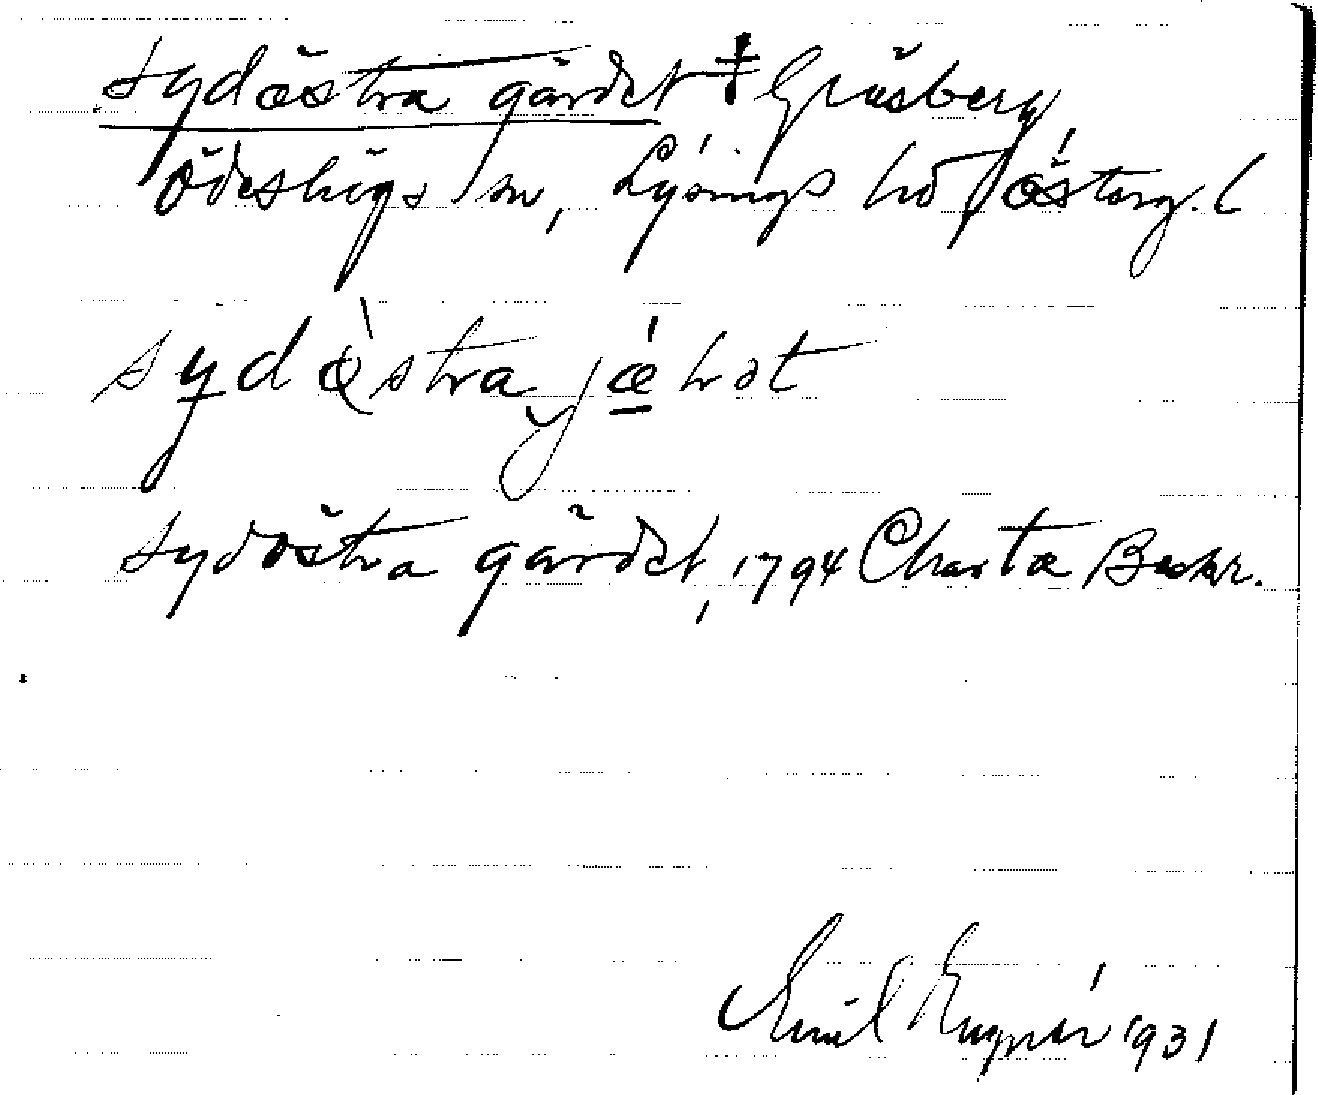 sydöstra gärdet ‡ Gräsberg,
Ödeshögs sn, Lysings hd, Österg. l
sydòstra jǽ rət
sydöstra gärdet, 1794 Charta Beskr.
Emil 1931